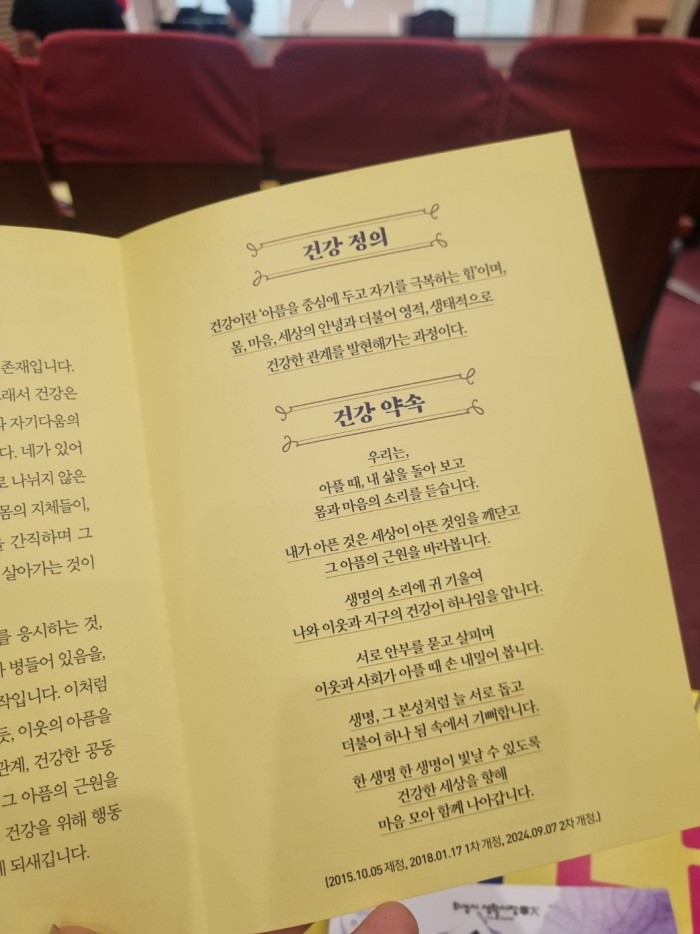 존재입니다.
래서 건강은
자기다움의
다. 네가 있어
로 나뉘지 않은
몸의 지체들이,
간직하며 그
살아가는 것이
를 응시하는 것,
병들어 있음을,
작입니다. 이처럼
듯, 이웃의 아픔을
관계, 건강한 공동
그 아픔의 근원을
건강을 위해 행동
되새깁니다.
건강 정의
건강이란 '아픔을 중심에 두고 자기를 극복하는 힘'이며,
몸, 마음, 세상의 안녕과 더불어 영적, 생태적으로
건강한 관계를 발현해가는 과정이다.
건강 약속
우리는,
아플 때, 내 삶을 돌아 보고
몸과 마음의 소리를 듣습니다.
내가 아픈 것은 세상이 아픈 것임을 깨닫고
그 아픔의 근원을 바라봅니다.
생명의 소리에 귀 기울여
나와 이웃과 지구의 건강이 하나임을 압니다.
서로 안부를 묻고 살피며
이웃과 사회가 아플 때 손 내밀어 봅니다.
생명, 그 본성처럼 늘 서로 돕고
더불어 하나 됨 속에서 기뻐합니다.
한 생명 한 생명이 빛날 수 있도록
건강한 세상을 향해
마음 모아 함께 나아갑니다.
[2015.10.05 제정, 2018.01.17 1차 개정, 2024.09.07 2차 개정.]